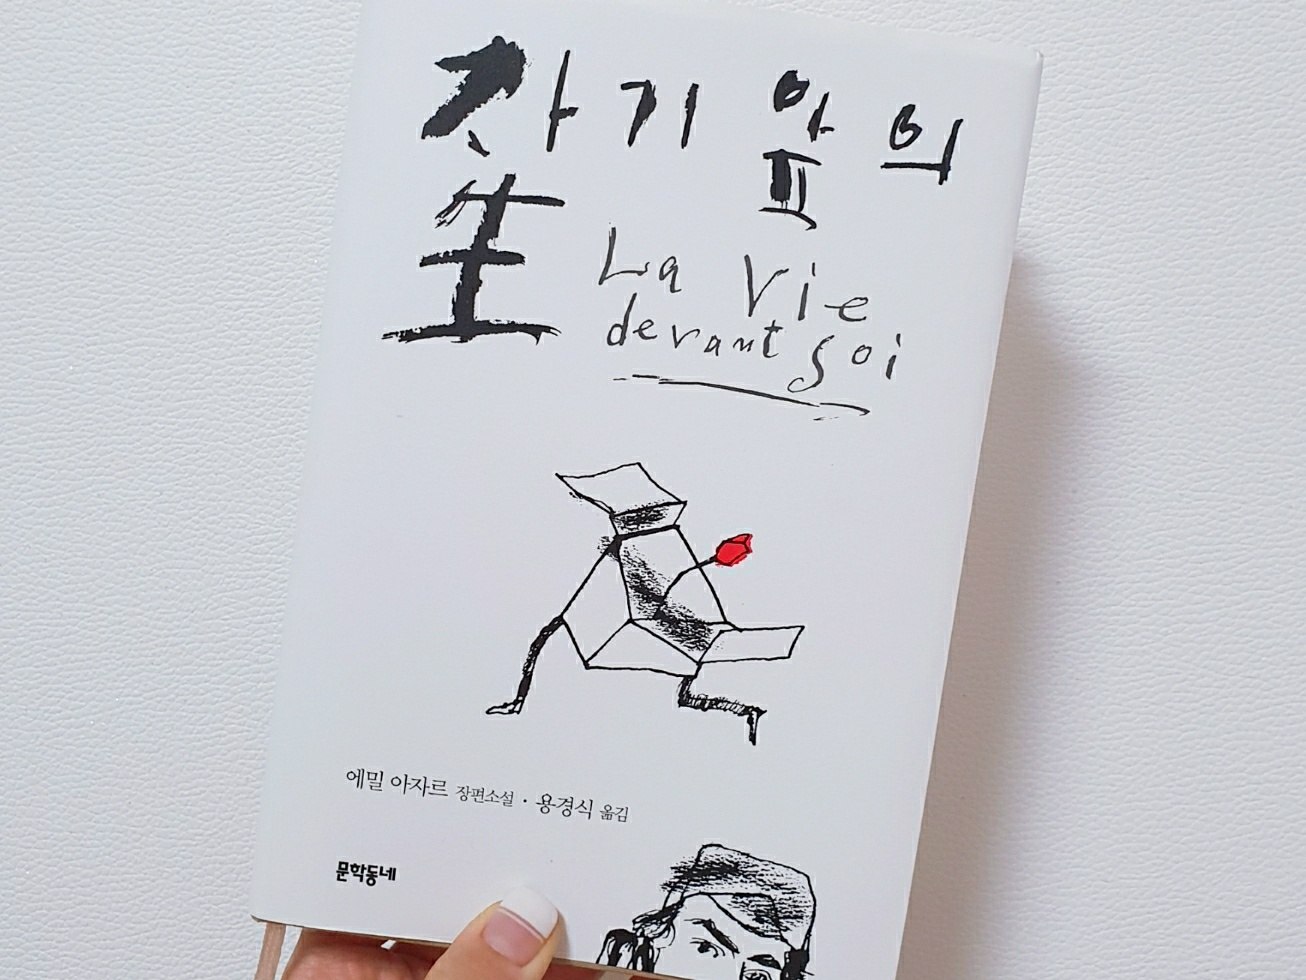 자기 앞의
生
La Vie
devant soi
에밀 아자르 장편소설 · 용경식 옮김
문학동네